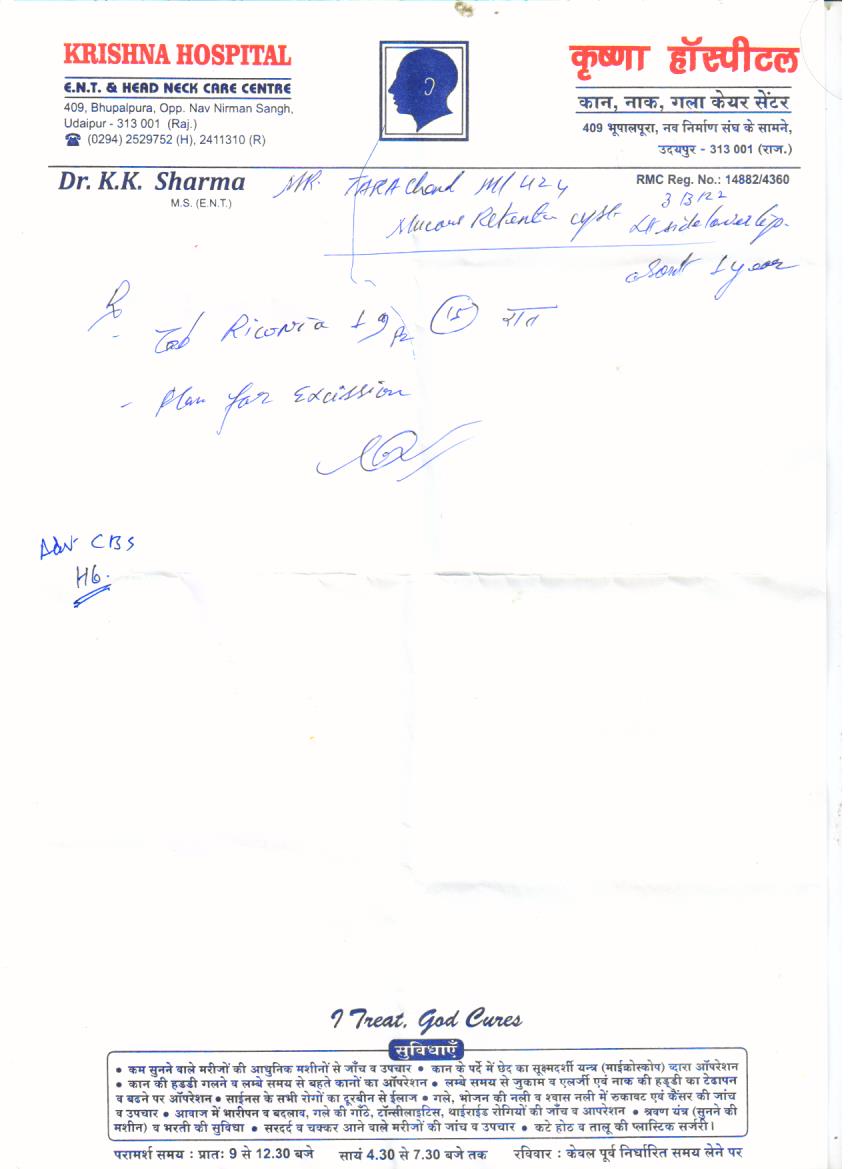 KRISHNA HOSPITAL
E.N.T. & HEAD NECK CARE CENTRE
409, Bhupalpura, Opp. Nav Nirman Sangh,
Udaipur - 313 001 (Raj.)
☎ (0294) 2529752 (H), 2411310 (R)
कृष्णा हॉस्पीटल
कान, नाक, गला केयर सेंटर
409 भूपालपूरा, नव निर्माण संघ के सामने,
उदयपुर - 313 001 (राज.)
Dr. K.K. Sharma
M.S. (E.N.T.)
RMC Reg. No.: 14882/4360
MR. TARA Chand M/42y
3/3/22
Mucous Retention cyst Lt side lower lip.
1 year
Rx
- Tab Riconia 1 (15) रात
- Plan for Excission
Adv CBS
Hb.
I Treat, God Cures
सुविधाएँ
• कम सुनने वाले मरीजों की आधुनिक मशीनों से जाँच व उपचार • कान के पर्दे में छेद का सूक्ष्मदर्शी यन्त्र (माईक्रोस्कोप) द्वारा ऑपरेशन
• कान की हडडी गलने व लम्बे समय से बहते कानों का ऑपरेशन • लम्बे समय से जुकाम व एलर्जी एवं नाक की हड्डी का टेढापन
व बढने पर ऑपरेशन • साईनस के सभी रोगों का दूरबीन से ईलाज • गले, भोजन की नली व श्वास नली में रुकावट एवं कैंसर की जांच
व उपचार • आवाज में भारीपन व बदलाव, गले की गाँठे, टॉन्सीलाइटिस, थाईराईड रोगियों की जाँच व आपरेशन • श्रवण यंत्र (सुनने की
मशीन) व भरती की सुविधा • सरदर्द व चक्कर आने वाले मरीजों की जांच व उपचार • कटे होठ व तालू की प्लास्टिक सर्जरी।
परामर्श समय : प्रातः 9 से 12.30 बजे सायं 4.30 से 7.30 बजे तक रविवार : केवल पूर्व निर्धारित समय लेने पर